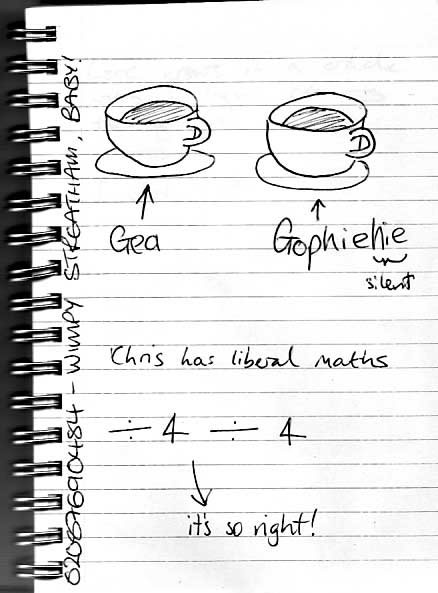 02087690484 - WIMPY STREATHAM, BABY!
Gea
Gophiehie
silent
Chris has liberal maths
÷ 4 ÷ 4
it's so right!